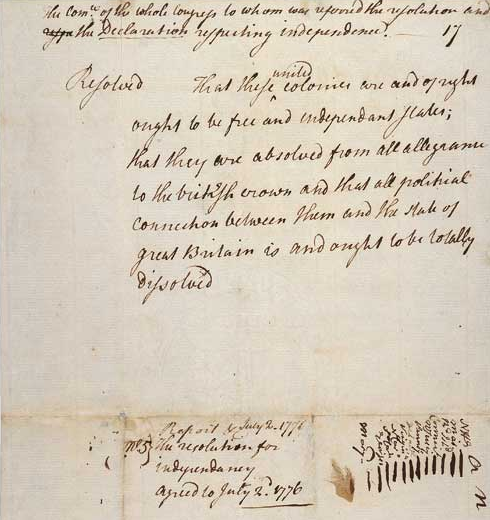 The com.ee of the whole Congress to whom was referred the resolution and
the Declaration respecting independence. 17
Resolved That these united colonies are and of right
ought to be free and independant states;
that they are absolved from all allegiance
to the british crown and that all political
connection between them and the state of
great Britain is and ought to be totally
dissolved
Report July 2. 1776
No. 5 the resolution for
independancy
agreed to July 2d. 1776